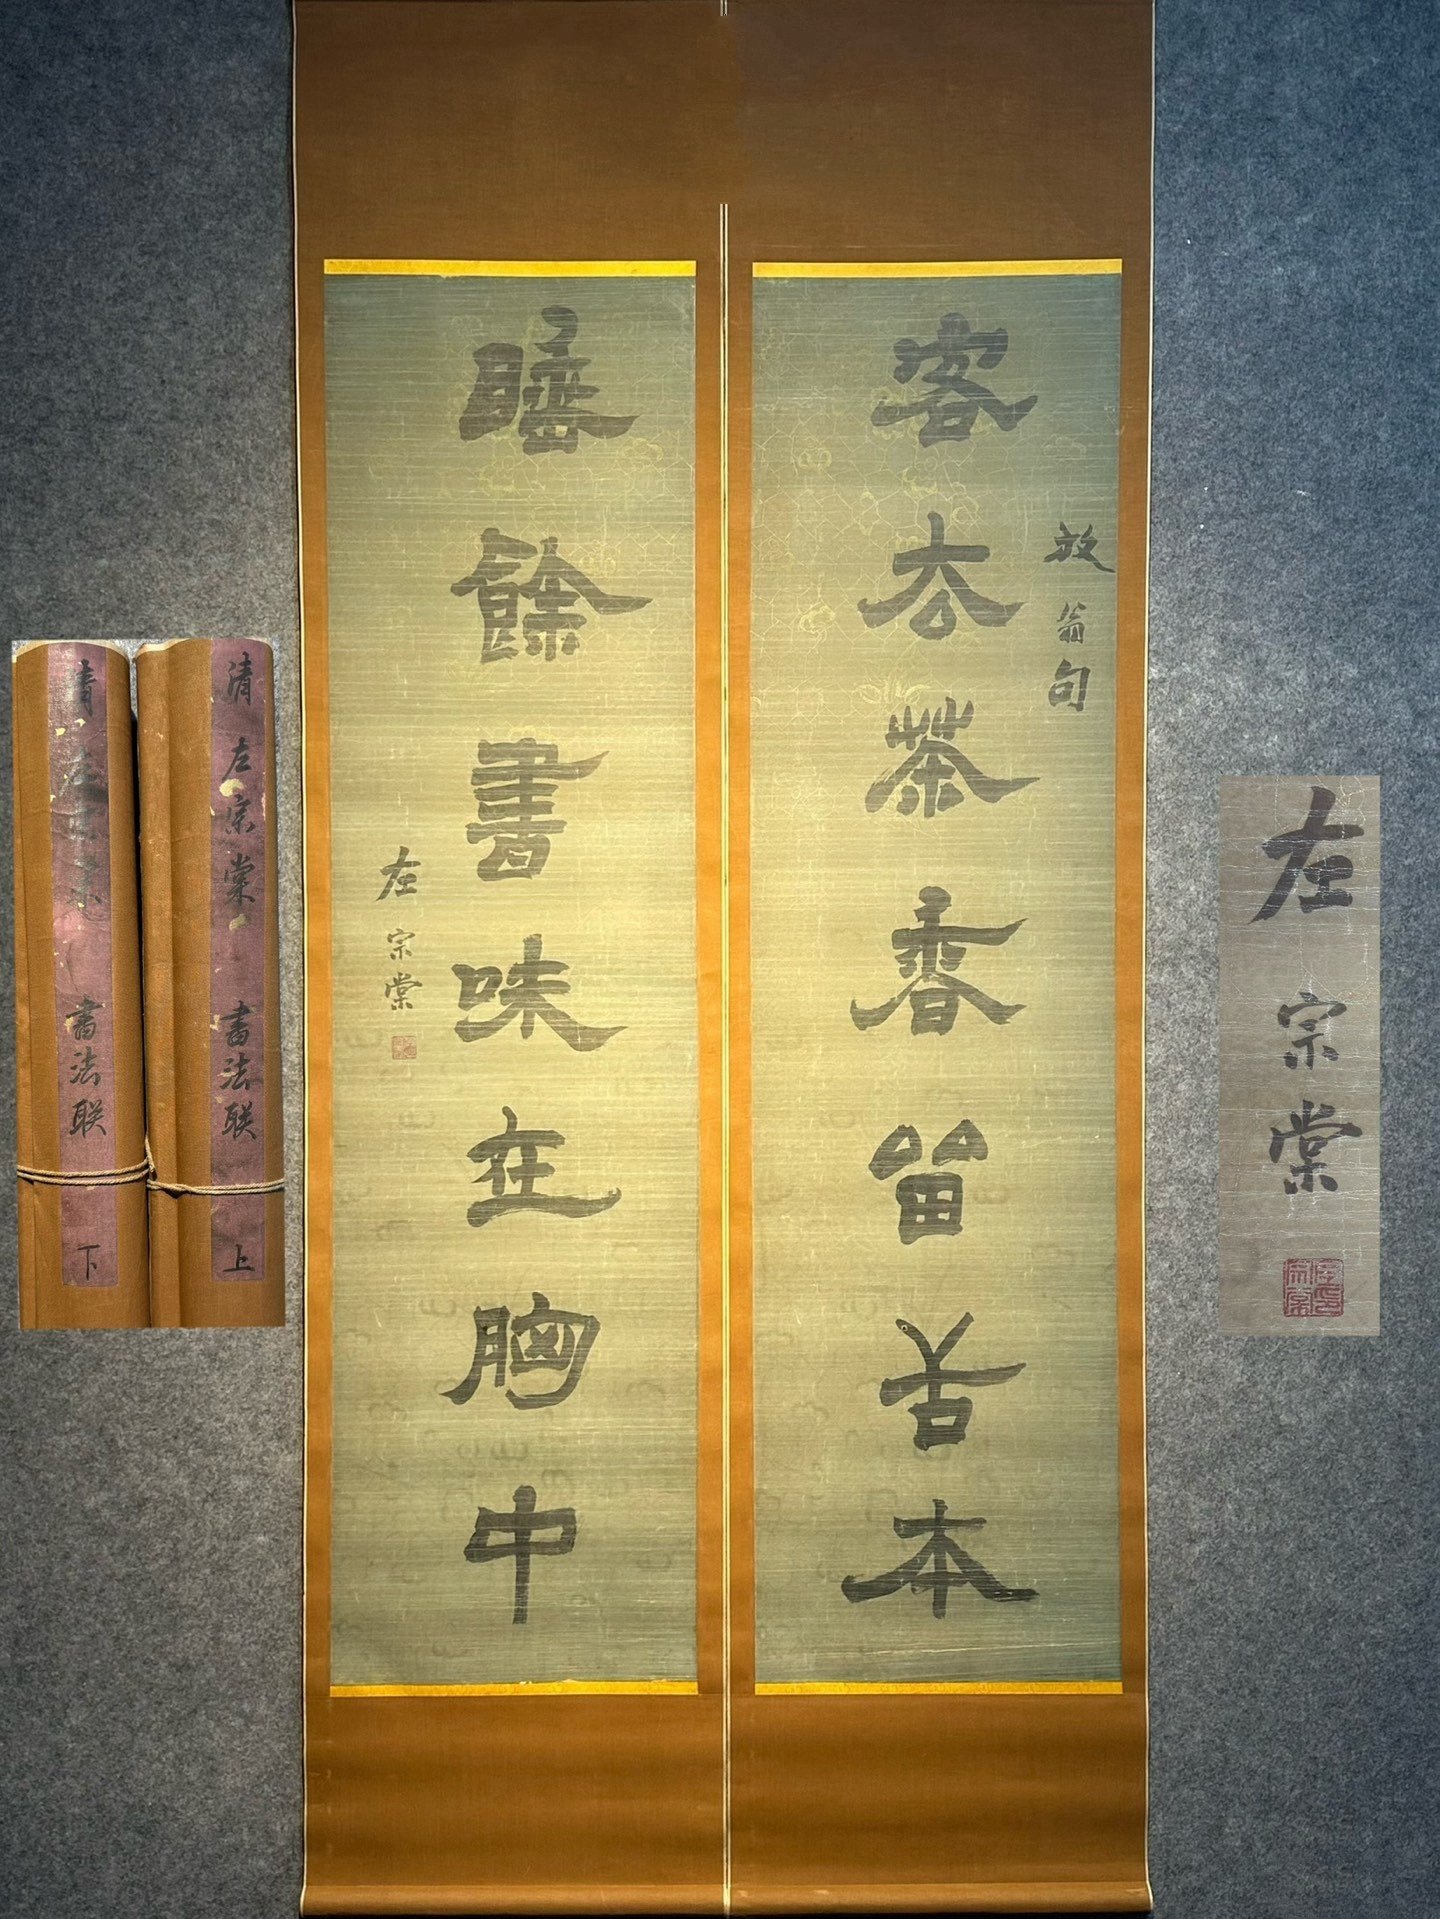 放翁句
客去茶香留舌本
睡餘書味在胸中
左宗棠
清 左宗棠 書法联 上
清 左宗棠 書法联 下
左宗棠